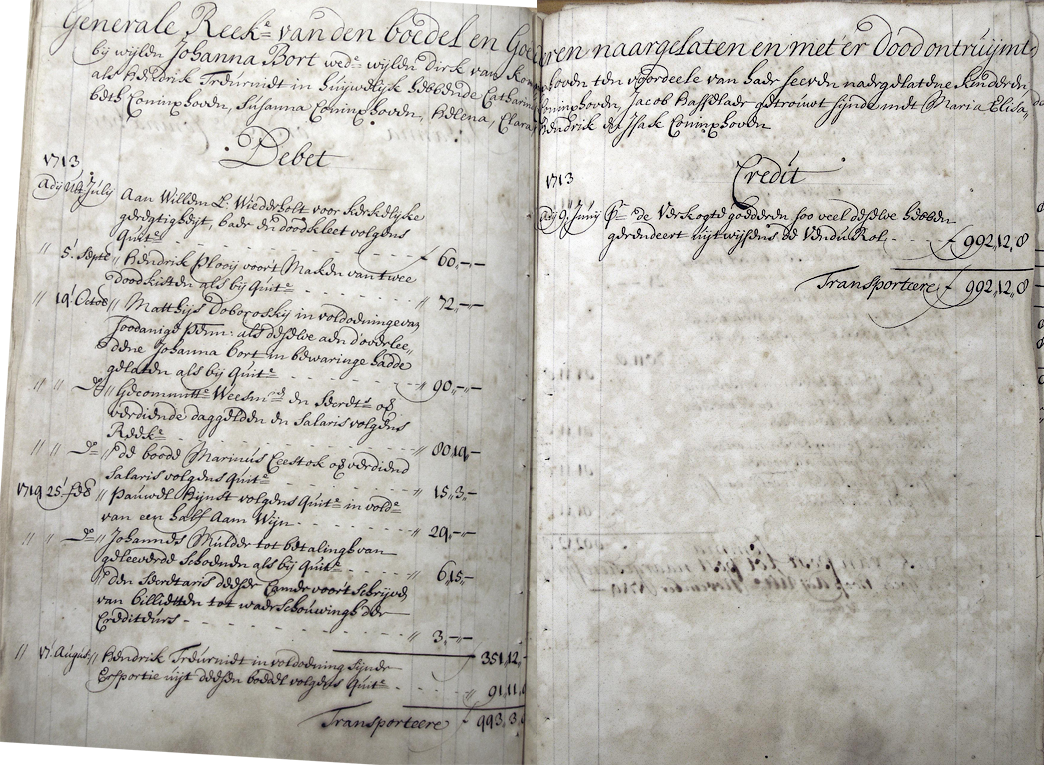 Generale Reek.e van den boedel en Goederen naargelaten en met'er Dood ontruijmt
bij wijlen Johanna Bort wed.e wijlen Dirk van Coninxhoven ten voordeele van haar seeven naergelatene kinderen
als Hendrik Treurniet in huijwelijk hebbende Catharina Coninxhoven, Jacob Hasselaer getrouwt sijnde met Maria Elisa„
beth Coninxhoven, Susanna Coninxhoven, Helena, Clara, Hendrik en Isack Coninxhoven
Debet
1713
Adij July Aan Willem L. Wiederholt voor kerkelijke
geregtigheijt, baar en doodkleet volgens
Quit.e - - - ƒ 60„-„-
" 5' Sept.e " Hendrik Plooij voor't Maken van twee
Doodkisten als bij Quit.e - - - " 72„-„-
" 19' Octob " Matthijs Doborosky in voldoeninge van
soodanige Penn: als deselve aen d'overlee„
dene Johanna bort in bewaringe hadde
gelaten als bij Quit.e - - - " 90„-„-
" " D.o " Gecommitt.e Weesm.rs en Secret.s op
verdiende daggelden en Salaris volgens
Reek.e - - - " 80„19„-
" " D.o " de boode Marinus Leestok op verdiend
Salaris volgens Quit.e - - - " 15„3„-
1719 25' Feb " Pauwel Rijnst volgens Quit.e in vold.e
van een half Aam Wijn - - - " 29„-„-
" " D.o " Johannes Mulder tot betalinge van
geleeverde Schoenen als bij Quit.e - - - " 6„15„-
" den Secretaris deeser Camer voor't schrijven
van billietten tot waerschouwinge der
Crediteurs - - - " 3„-„-
351„12„-
" 17' August " Hendrik Treurniet in voldoening sijner
Erfportie uijt deesen boedel volgens Quit.e - - " 91„11„
Transporteere ƒ 993„3„
Credit
1713
Adij 9' Junij P.r de Verkogte goederen soo veel deselve hebben
gerendeert uijtwijsens de Vendu Rol - - ƒ 992„12„8
Transporteere ƒ 992„12„8